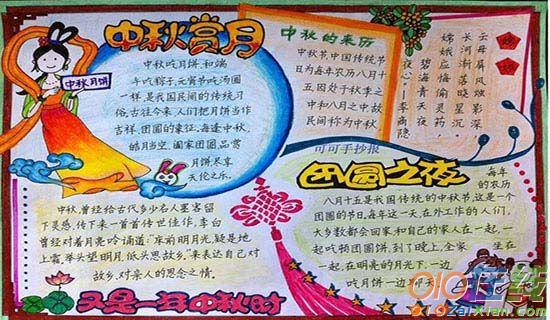 中秋赏月
中秋月饼
中秋吃月饼,和端
午吃粽子,元宵节吃汤圆
一样,是我国民间的传统习
俗。古往今来,人们把月饼当作
吉祥、团圆的象征。每逢中秋,
皓月当空,阖家团圆,品
月饼尽享
天伦乐。
中秋的来历
中秋节,中国传统节
日为每年农历八月十
五,因处于秋季之
中和八月之中,故
民间称为中秋
嫦娥
云母屏风烛影深
长河渐落晓星沉
嫦娥应悔偷灵药
碧海青天夜夜心
——李商隐
可可手抄报
团圆之夜
每年
的农历
八月十五是我国传统的中秋节,这是一个
团圆的节日,每年这一天,在外工作的人们,
大多数都会回家,和自己的家人在一起,一
起吃顿团圆饼,到了晚上,全家
生在
一起,在明亮的月光下,一边
吃月饼一边聊天
中秋,曾经给古代多少名人墨客留
下灵感,传下来一首首传世佳作。李白
曾经对着月亮吟诵道:“床前明月光,疑是地
上霜,举头望明月,低头思故乡。”来表达自己对
故乡,对亲人的思念之情。
又是一年中秋时
010在线
x1ozaixian.com